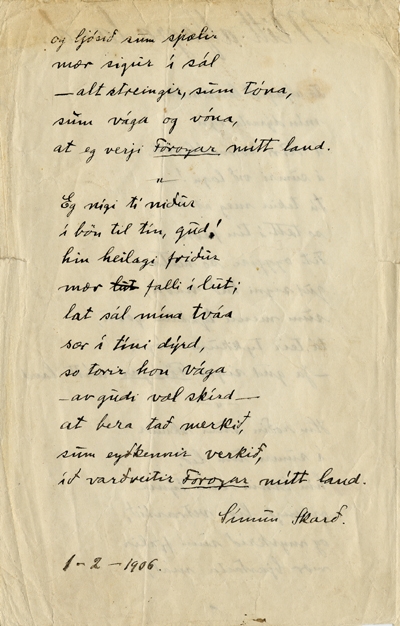 og ljósið sum spælir
mær sigur í sál
— alt streingir, sum tóna,
sum vága og vóna,
at eg verji Föroyar mítt land.
"
Eg nígi tí niður
í bön til tín, gud!
hin heilagi friður
mær lut falli í lut;
lat sál mína tváa
sær í tíni dýrd,
so torir hon vága
— av gudi væl skírd —
at bera tað merkið,
sum eyðkennir verkið,
ið varðveitir Föroyar mítt land.
Símun Skarð.
1 - 2 - 1906.